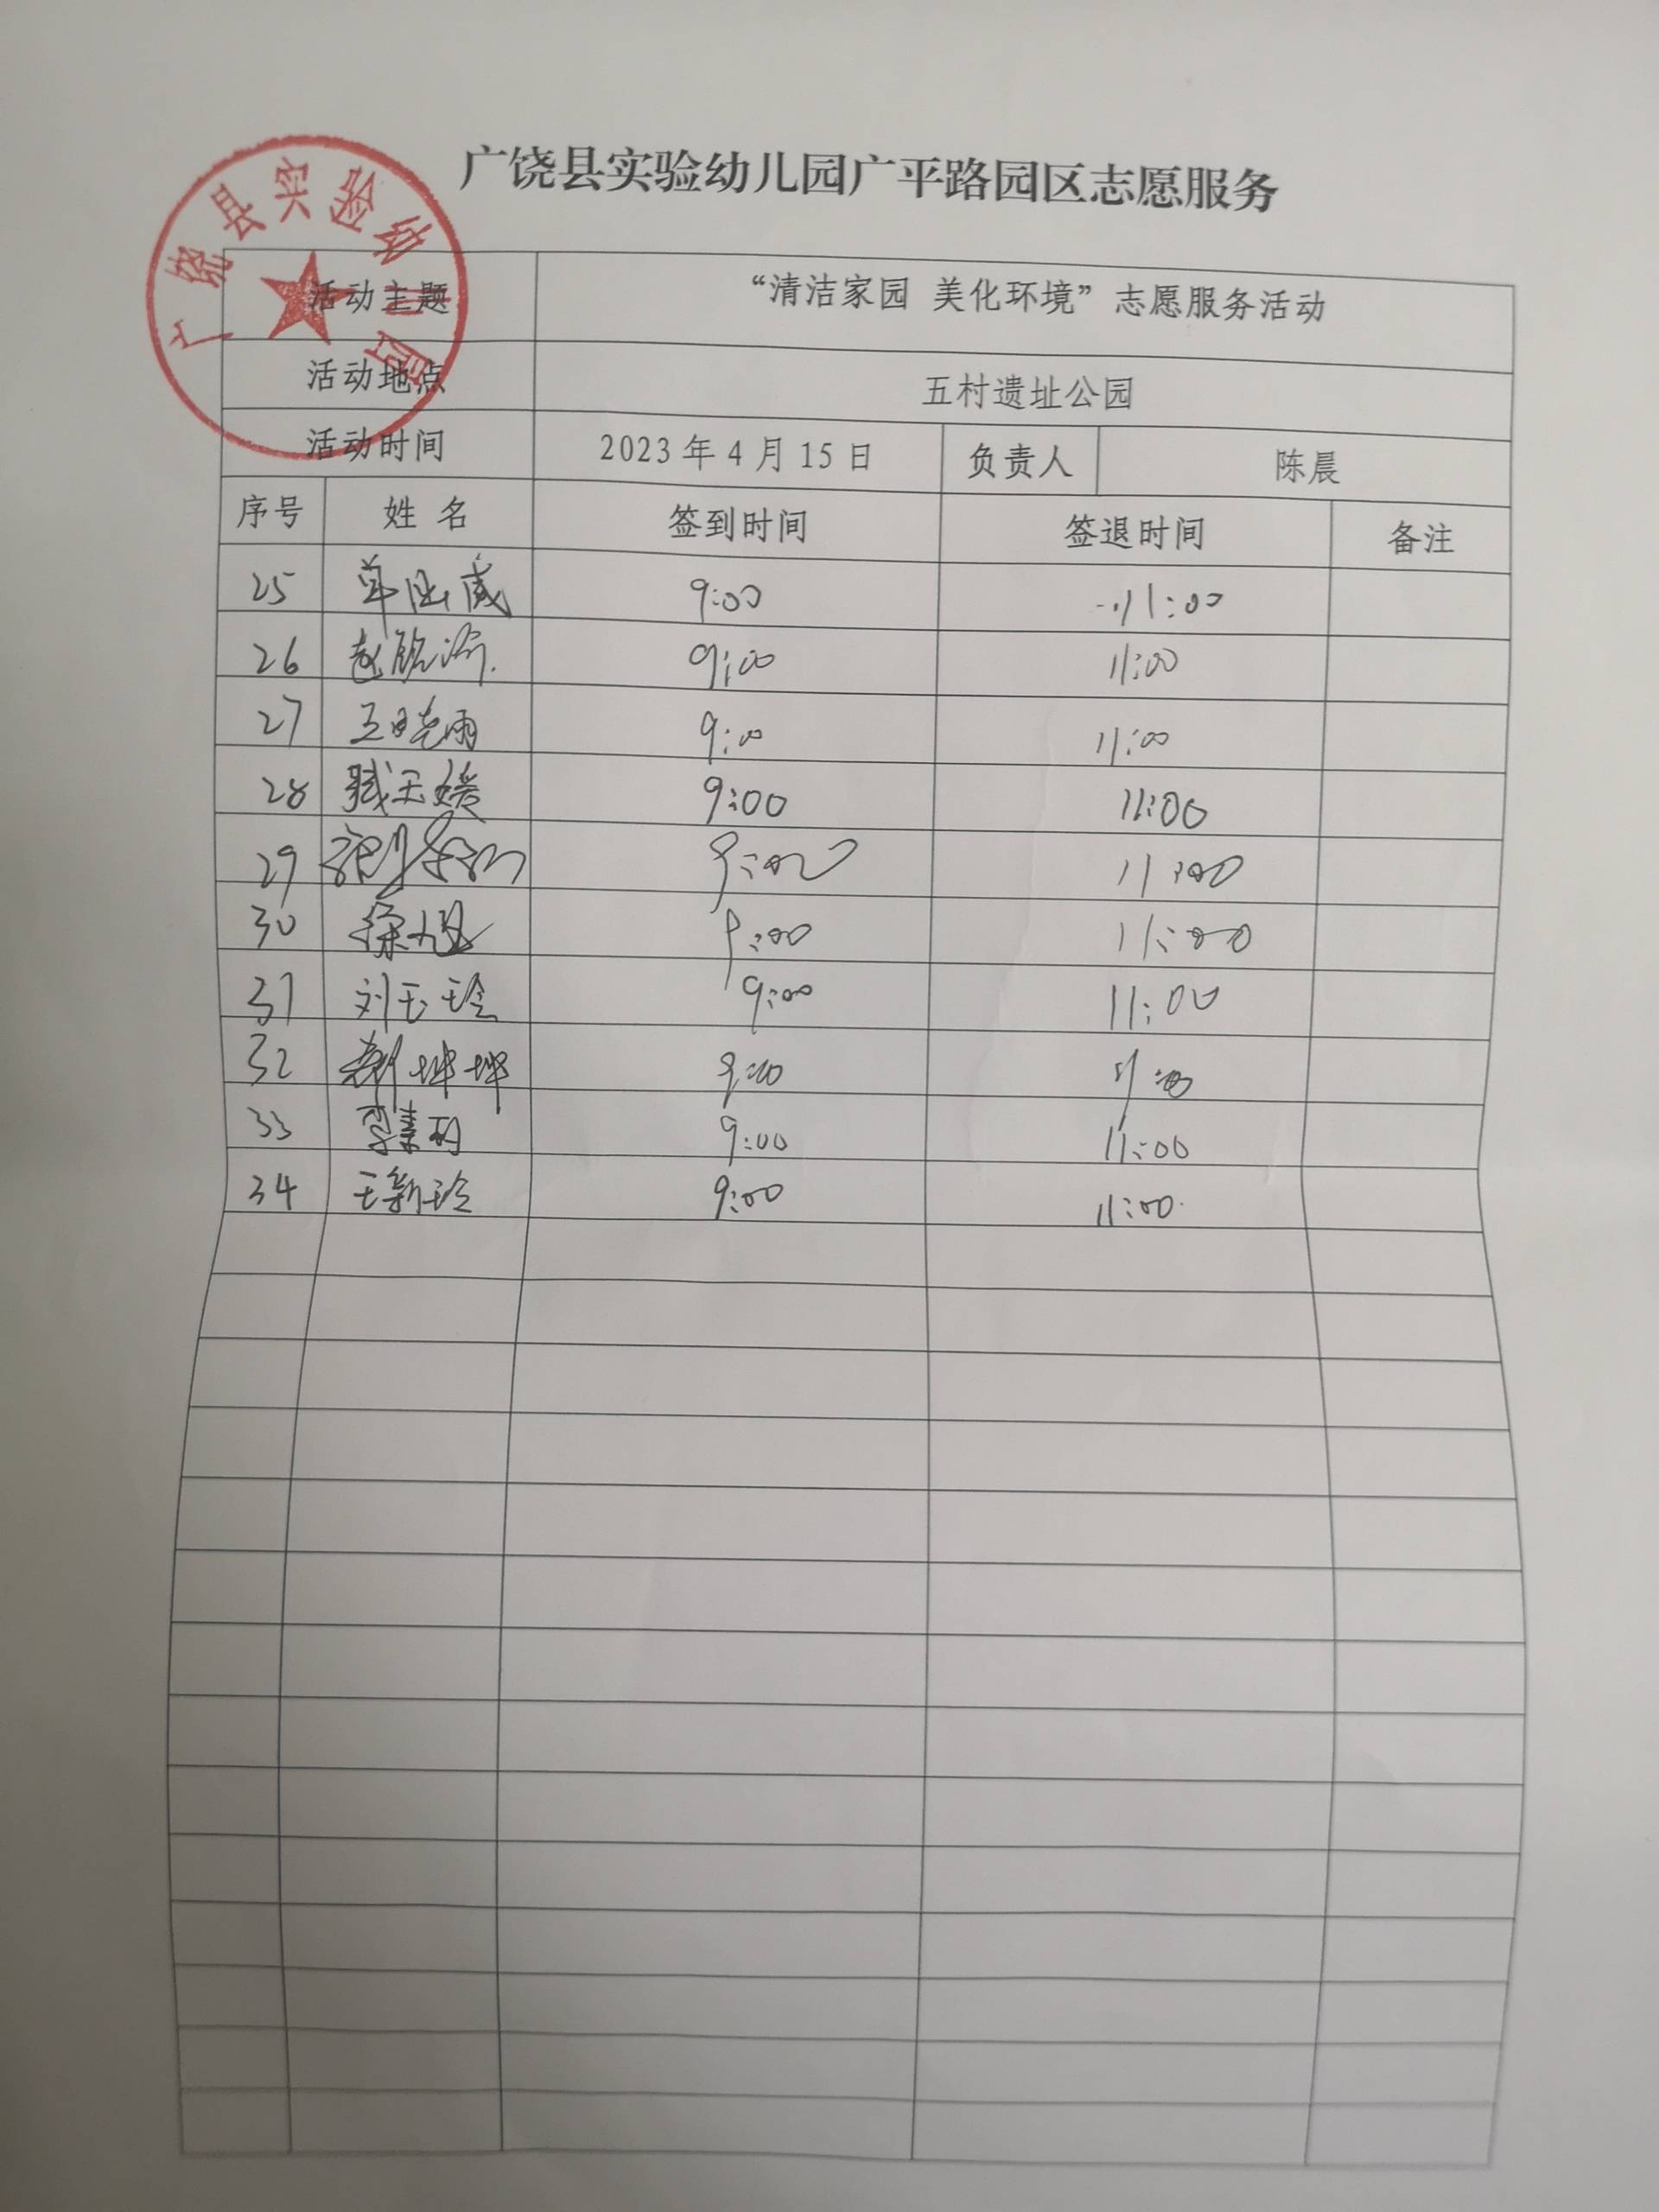 广饶县实验幼儿园广平路园区志愿服务
广饶县实验幼儿园
活动主题 “清洁家园 美化环境”志愿服务活动
活动地点 五村遗址公园
活动时间 2023年4月15日 负责人 陈晨
序号 姓名 签到时间 签退时间 备注
25 9:00 11:00
26 9:00 11:00
27 王晓雨 9:00 11:00
28 9:00 11:00
29 9:00 11:00
30 徐旭 9:00 11:00
31 刘玉玲 9:00 11:00
32 坤坤 9:00
33 9:00 11:00
34 王新玲 9:00 11:00